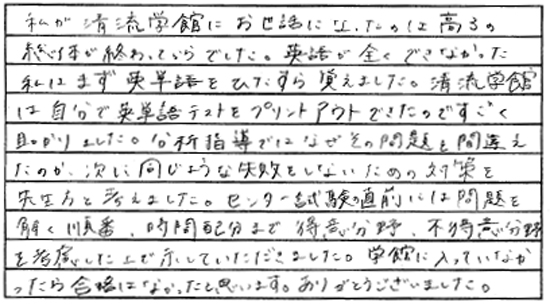 私が清流学館にお世話になったのは高3の
総体が終わってからでした。英語が全くできなかった
私はまず英単語をひたすら覚えました。清流学館
は自分で英単語テストをプリントアウトできたのですごく
助かりました。分析指導ではなぜその問題を間違え
たのか、次に同じような失敗をしないための対策を
先生方と考えました。センター試験直前には問題を
解く順番、時間配分まで得意分野、不得意分野
を考慮した上で示していただきました。学館に入っていなか
ったら合格はなかったと思います。ありがとうございました。